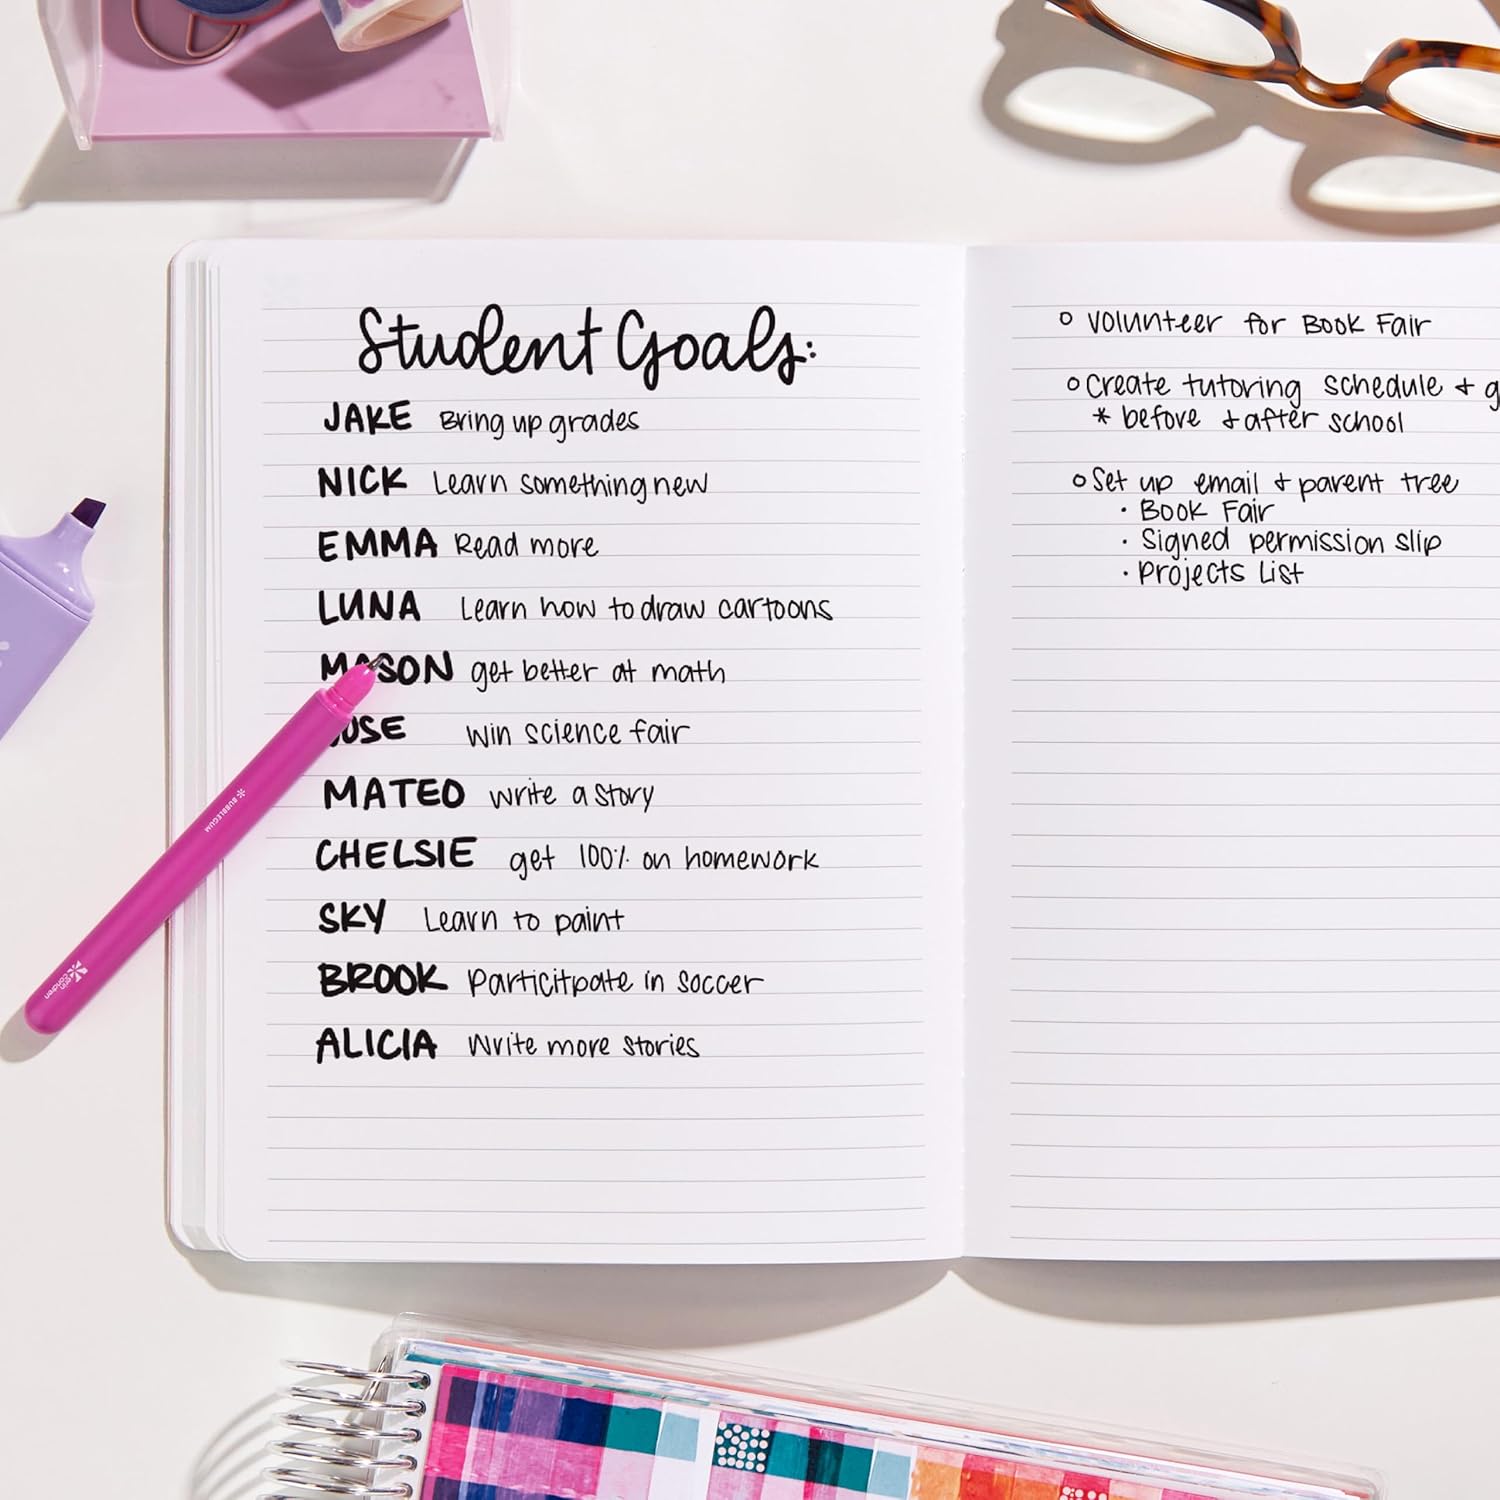 Student Goals:
JAKE Bring up grades
NICK Learn something new
EMMA Read more
LUNA Learn how to draw cartoons
MASON get better at math
win science fair
MATEO write a story
CHELSIE get 100% on homework
SKY Learn to paint
BROOK Particitpate in soccer
ALICIA Write more stories
Volunteer for Book Fair
Create tutoring schedule +
* before + after school
Set up email + parent tree
· Book Fair
· Signed permission slip
· Projects List
BUBBLEGUM
erin condren